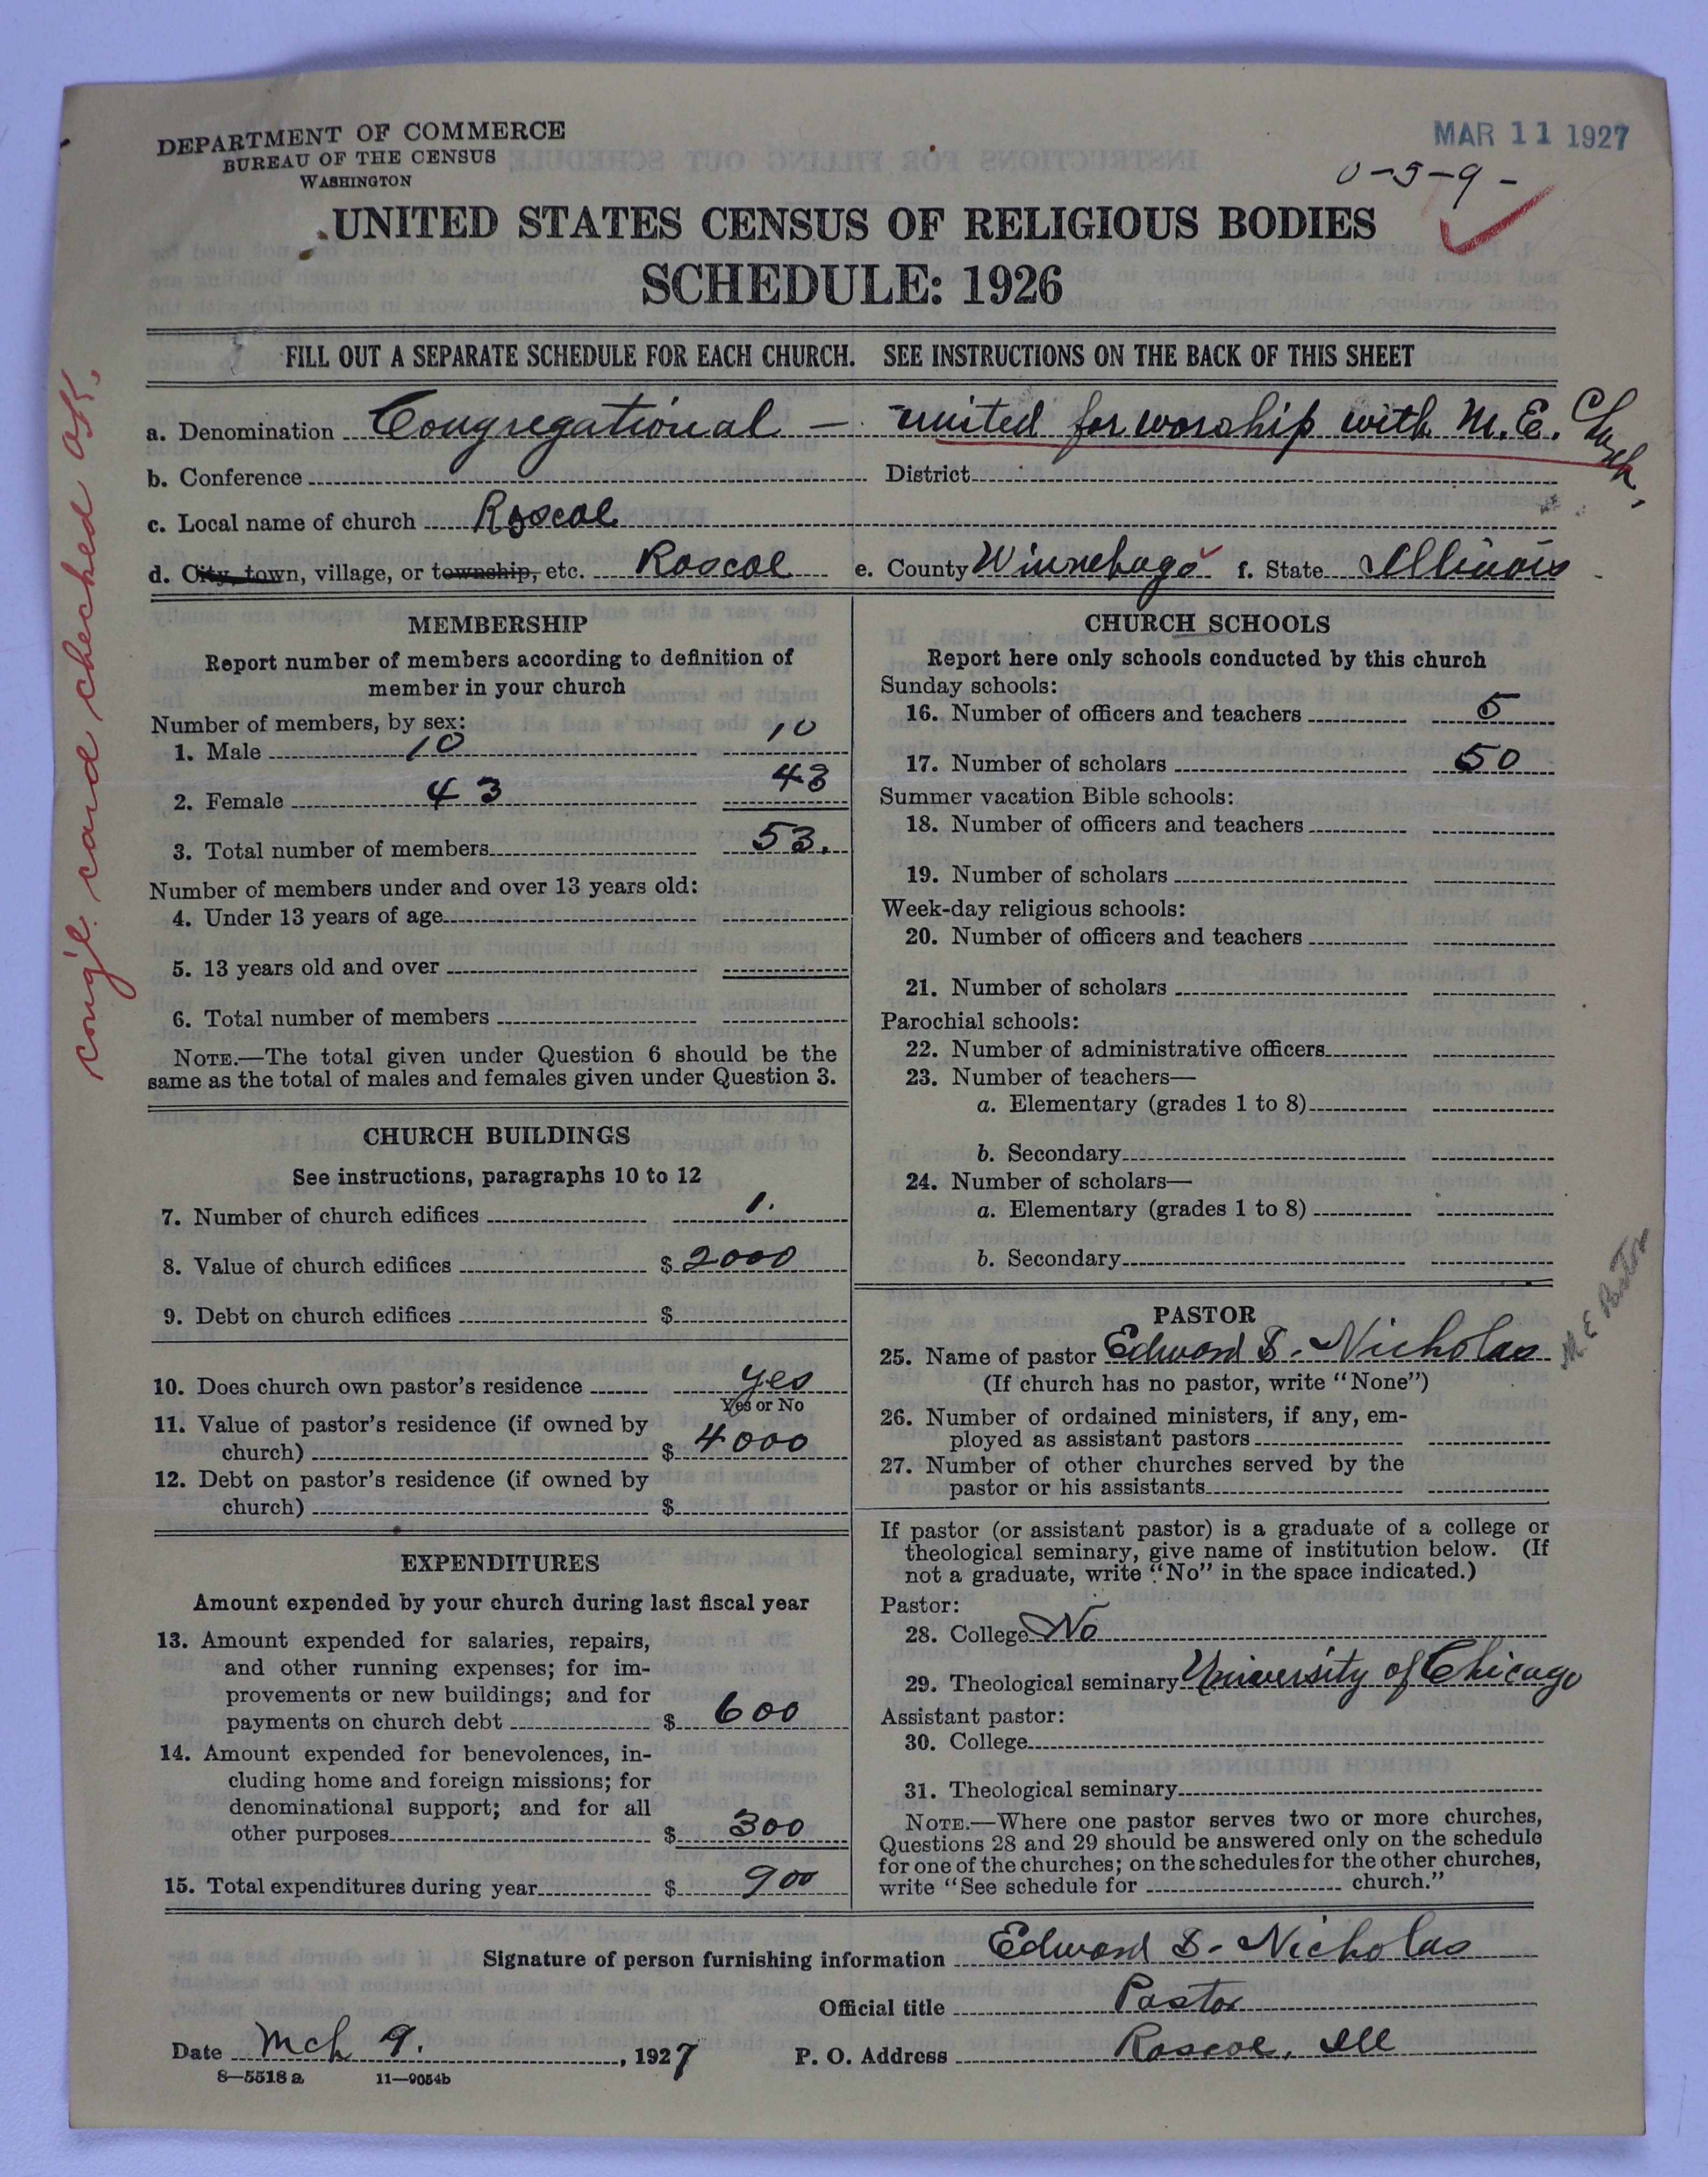 DEPARTMENT OF COMMERCE
BUREAU OF THE CENSUS
WASHINGTON
MAR 11 1927
0-5-9-
UNITED STATES CENSUS OF RELIGIOUS BODIES
SCHEDULE: 1926
FILL OUT A SEPARATE SCHEDULE FOR EACH CHURCH. SEE INSTRUCTIONS ON THE BACK OF THIS SHEET
a. Denomination Congregational – united for worship with M.E. Church,
b. Conference District
c. Local name of church Roscoe
d. City, town, village, or township, etc. Roscoe e. County Winnebago f. State Illinois
cong'l. card checked OK.
MEMBERSHIP
Report number of members according to definition of
member in your church
Number of members, by sex:
1. Male 10 10
2. Female 43 43
3. Total number of members 53.
Number of members under and over 13 years old:
4. Under 13 years of age
5. 13 years old and over
6. Total number of members
NOTE.—The total given under Question 6 should be the
same as the total of males and females given under Question 3.
CHURCH BUILDINGS
See instructions, paragraphs 10 to 12
7. Number of church edifices 1.
8. Value of church edifices $ 2000
9. Debt on church edifices $
10. Does church own pastor's residence yes
Yes or No
11. Value of pastor's residence (if owned by
church) $ 4000
12. Debt on pastor's residence (if owned by
church) $
EXPENDITURES
Amount expended by your church during last fiscal year
13. Amount expended for salaries, repairs,
and other running expenses; for im-
provements or new buildings; and for
payments on church debt $ 600
14. Amount expended for benevolences, in-
cluding home and foreign missions; for
denominational support; and for all
other purposes $ 300
15. Total expenditures during year $ 900
CHURCH SCHOOLS
Report here only schools conducted by this church
Sunday schools:
16. Number of officers and teachers 5
17. Number of scholars 50
Summer vacation Bible schools:
18. Number of officers and teachers
19. Number of scholars
Week-day religious schools:
20. Number of officers and teachers
21. Number of scholars
Parochial schools:
22. Number of administrative officers
23. Number of teachers—
a. Elementary (grades 1 to 8)
b. Secondary
24. Number of scholars—
a. Elementary (grades 1 to 8)
b. Secondary
PASTOR
25. Name of pastor Edward S. Nicholas
M E Pastor
(If church has no pastor, write "None")
26. Number of ordained ministers, if any, em-
ployed as assistant pastors
27. Number of other churches served by the
pastor or his assistants
If pastor (or assistant pastor) is a graduate of a college or
theological seminary, give name of institution below. (If
not a graduate, write "No" in the space indicated.)
Pastor:
28. College No
29. Theological seminary University of Chicago
Assistant pastor:
30. College
31. Theological seminary
NOTE.—Where one pastor serves two or more churches,
Questions 28 and 29 should be answered only on the schedule
for one of the churches; on the schedules for the other churches,
write "See schedule for church."
Signature of person furnishing information Edward S. Nicholas
Official title Pastor
Date Mch 9. , 1927 P. O. Address Roscoe, Ill
8—5518 a 11—9054b